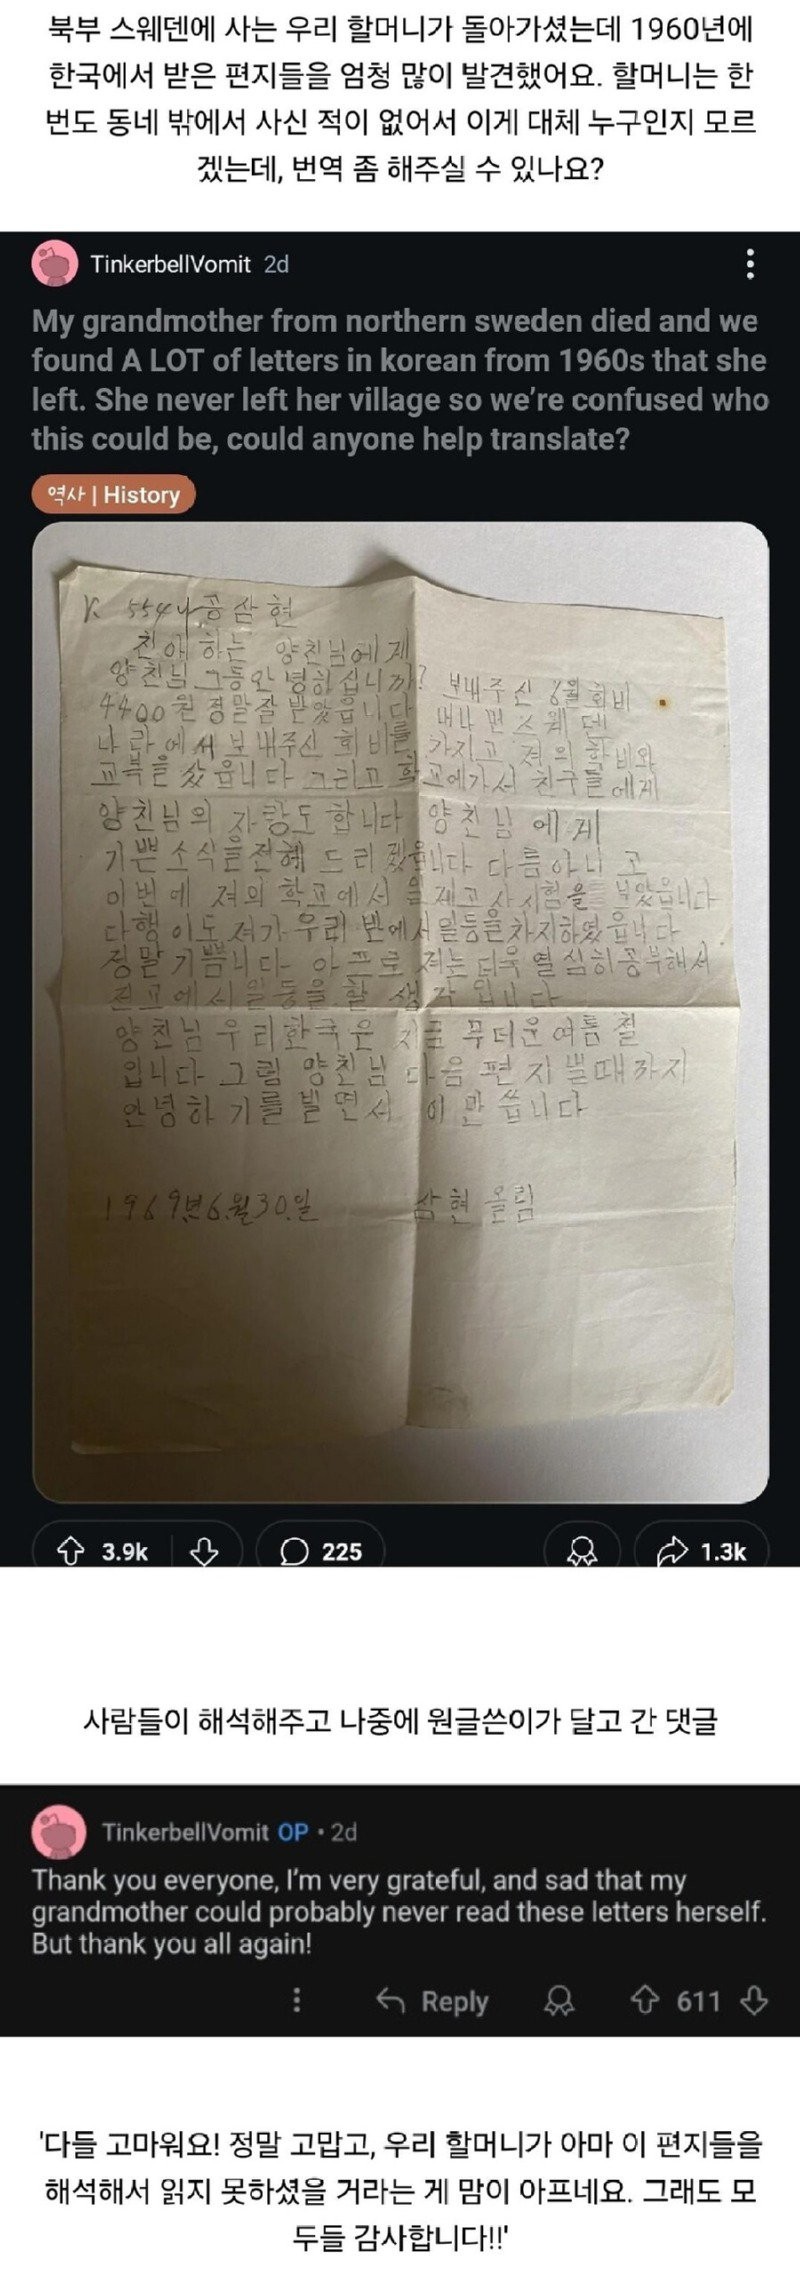 북부 스웨덴에 사는 우리 할머니가 돌아가셨는데 1960년에
한국에서 받은 편지들을 엄청 많이 발견했어요. 할머니는 한
번도 동네 밖에서 사신 적이 없어서 이게 대체 누구인지 모르
겠는데, 번역 좀 해주실 수 있나요?
TinkerbellVomit 2d
My grandmother from northern sweden died and we
found A LOT of letters in korean from 1960s that she
left. She never left her village so we're confused who
this could be, could anyone help translate?
역사 | History
K 5544 공삼현
친애하는 양친님에게
양친님 그동안 녕히십니까? 보내주신 6월회비
4400원 정말잘 받았읍니다
나라에서 보내주신 회비를 가지고 져의 학비와
교복을 샀읍니다 그리고 학교에가서 친구들에게
양친님의 자랑도 합니다 양친님에게
기쁜소식을전해 드리겠읍니다 다름아니고
이번에 져의 학교에서 일제고사시험을 보았읍니다
다행이도 져가 우리 반에서 일등을차지하였읍니다
정말기쁨니다 아프로 져는 더욱 열심히공부해서
전교에서일등을할 생각입니다
양친님 우리한국은 지금 무더운여름철
입니다 그럼 양친님 다음 편지쓸때까지
안녕하기를 빌면서 이만 씁니다
1969년6월30일 삼현 올림
3.9k 225 1.3k
사람들이 해석해주고 나중에 원글쓴이가 달고 간 댓글
TinkerbellVomit OP • 2d
Thank you everyone, I'm very grateful, and sad that my
grandmother could probably never read these letters herself.
But thank you all again!
Reply 611
'다들 고마워요! 정말 고맙고, 우리 할머니가 아마 이 편지들을
해석해서 읽지 못하셨을 거라는 게 맘이 아프네요. 그래도 모
두들 감사합니다!!'